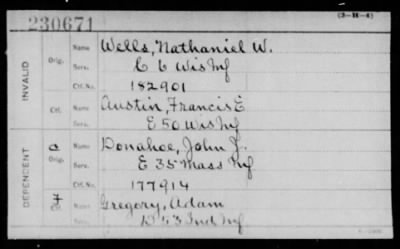 230671
(3-H-4)
INVALID
Orig. Name Wells, Nathaniel W.
Serv. C 6 Wis Inf
Ctf. No. 182901
Ctf. Name Austin, Francis E
Serv. E 50 Wis Inf
DEPENDENT
C Orig. Name Donahoe, John J.
Serv. E 35 Mass Inf
Ctf. No. 177914
Ctf. Name Gregory, Adam
Serv. D 53 Ind Inf